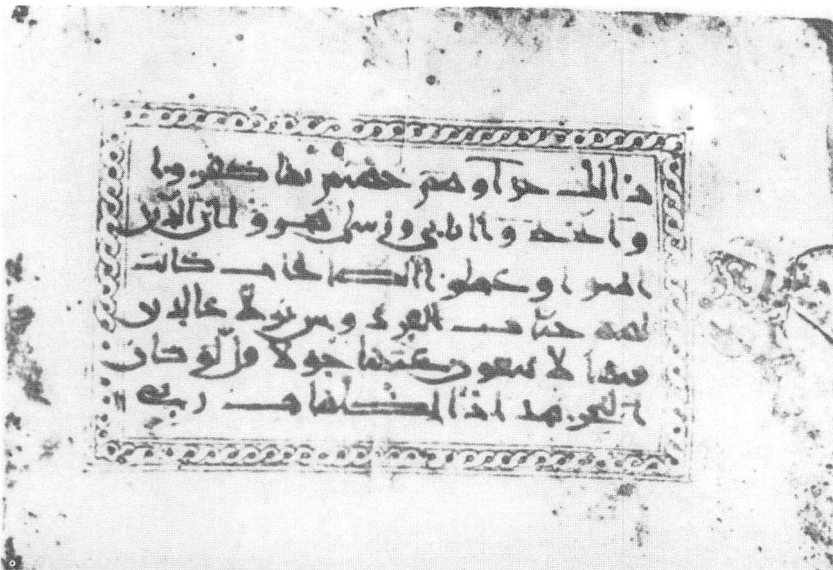 ذالك جزاوهم جهنم بما كفروا
واتخذوا اياتي ورسلي هزوا ان الذين
امنوا وعملوا الصالحات كانت
لهم جنات الفردوس نزلا خالدين
فيها لا يبغون عنها حولا قل لو كان
البحر مدادا لكلمات ربي